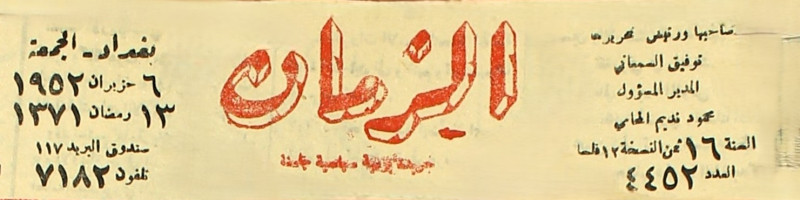 صاحبها ورئيس تحريرها
توفيق السمعاني
المدير المسؤول
محمود نديم المحامي
السنة ١٦ ثمن النسخة ١٢ فلسا
العدد ٤٤٥٢
الزمان
جريدة يومية سياسية جامعة
بغداد - الجمعة
٦ حزيران ١٩٥٢
١٣ رمضان ١٣٧١
صندوق البريد ١١٧
تلفون ٧١٨٢